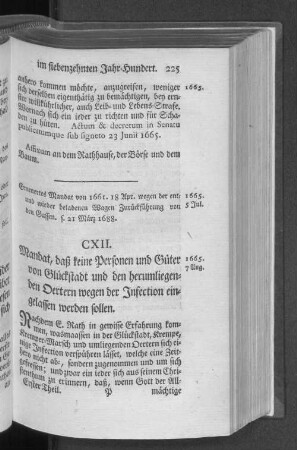 im siebenzehnten Jahr-Hundert. 225
anhero kommen möchte, anzugreifen, weniger 1665.
sich derselben eigenthätig zu bemächtigen, bey ern-
ster willkührlicher, auch Leib- und Lebens-Strafe,
Wornach sich ein ieder zu richten und für Scha-
den zu hüten. Actum & decretum in Senatu
publicatumque sub signeto 23 Junii 1665.
Affixum an dem Rathhause, der Börse und dem
Baum.
Erneuertes Mandat von 1661. 18 Apr. wegen der ent- 1665.
und wieder beladenen Wagen Zurückführung von 5 Jul.
den Gassen. s. 21 März 1688.
CXII.
Mandat, daß keine Personen und Güter 1665.
von Glückstadt und den herumliegen- 7 Aug.
den Oertern wegen der Infection ein-
gelassen werden sollen.
Nachdem E. Rath in gewisse Erfahrung kom-
men, wasmaassen in der Glückstadt, Krempe,
Kremper-Marsch und umliegenden Oertern sich ei-
nige Infection verspühren lässet, welche eine Zeit-
hero nicht ab, sondern zugenommen und um sich
gefressen; und zwar ein ieder sich aus seinem Chri-
stenthum zu erinnern, daß, wenn Gott der All-
Erster Theil. P mächtige